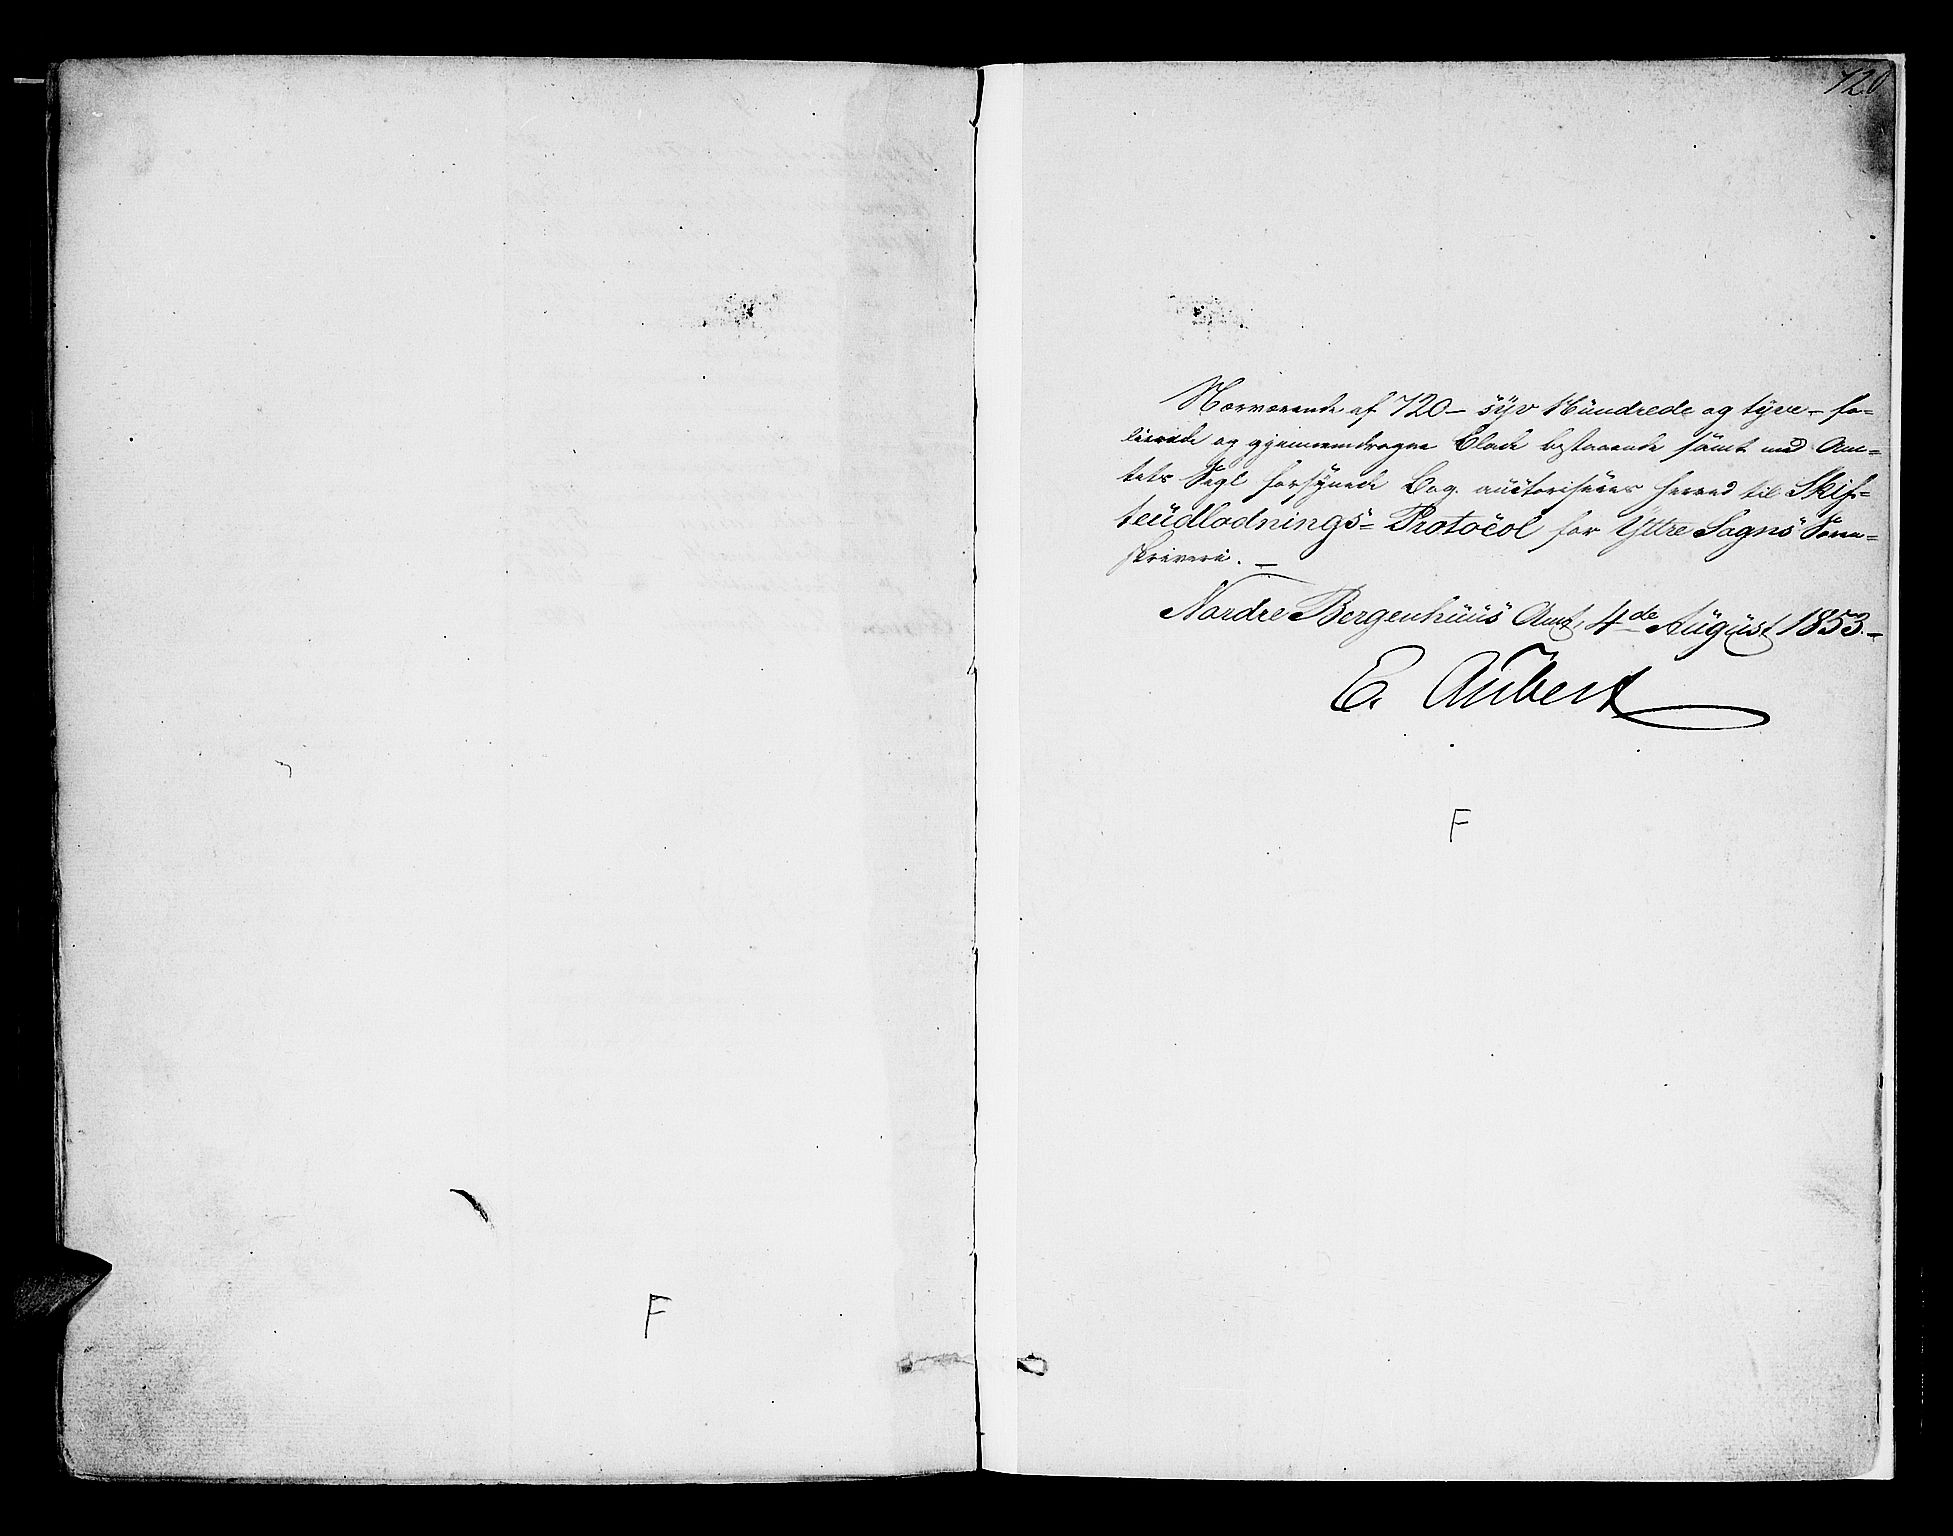 720
Nærværende af 720 – syv Hundrede og tyve – fo=
lierede og gjennemdragne Blade bestaaende samt med Am=
tets Segl forsynede Bog auctoriseres herved til Skif=
teudlodnings= Protocol for Yttre Sogns Soren=
skriveri. –
Nordre Bergenhuus Amt, 4de August 1853. –
E. Aubert
F
F